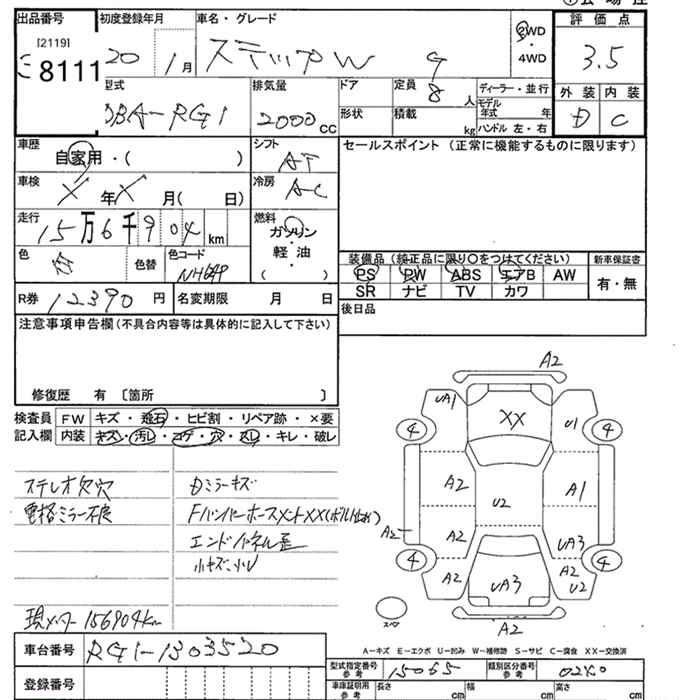 出品番号 初度登録年月 車名・グレード 評価点
[2119] 8111 20年 1月 ステップW G 2WD・4WD 3.5
型式 排気量 ドア 定員 ディーラー・並行 外装 内装
DBA-RG1 2000cc 8人 モデル年式 年 D C
形状 積載 kg ハンドル 左・右
車歴 シフト セールスポイント (正常に機能するものに限ります)
自家用・( ) AT
車検 × 年 × 月( 日) 冷房 AC
走行 15万6千904km 燃料 ガソリン・軽油 ( )
色 色替 色コード 装備品 (純正品に限り○をつけてください) 新車保証書
NH649 PS PW ABS エアB AW 有・無
SR ナビ TV カワ
R券 12390円 名変期限 月 日 後日品
注意事項申告欄(不具合内容等は具体的に記入して下さい)
修復歴 有 〔箇所 〕
検査員 FW キズ・飛石・ヒビ割・リペア跡・×要
記入欄 内装 キズ・汚レ・コゲ・穴・スレ・キレ・破レ
ステレオ欠穴 Dミラーキズ
電格ミラー不良 FバンパーホースメントXX(ボルト止め)
エンドパネル歪
小キズ小U
現メーター156904km
A2
UA1 XX U1
4 4
A2 U2 A1
A2 A2 UA3
4 4
A2 UA3 A2 U2
スペア A2
A-キズ E-エクボ U-凹み W-補修跡 S-サビ C-腐食 XX-交換済
車台番号 RG1-1303520
型式指定番号 参考 15065 類別区分番号 参考
登録番号 車庫証明用 参考 長さ cm 幅 cm 高さ cm